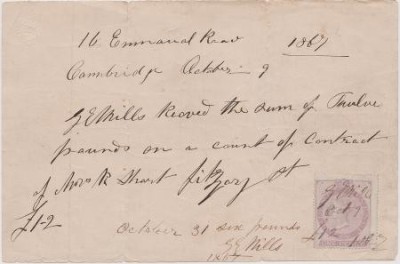 16 Emmanuel Road 1867
Cambridge October 9
G E Wills Receved the sum of Twelve
pounds on a count of contract
of Mrs R Short fitzroy st
£12
October 31 six pounds
G E Wills
1867
G E Wills
Oct 9
£12 1867